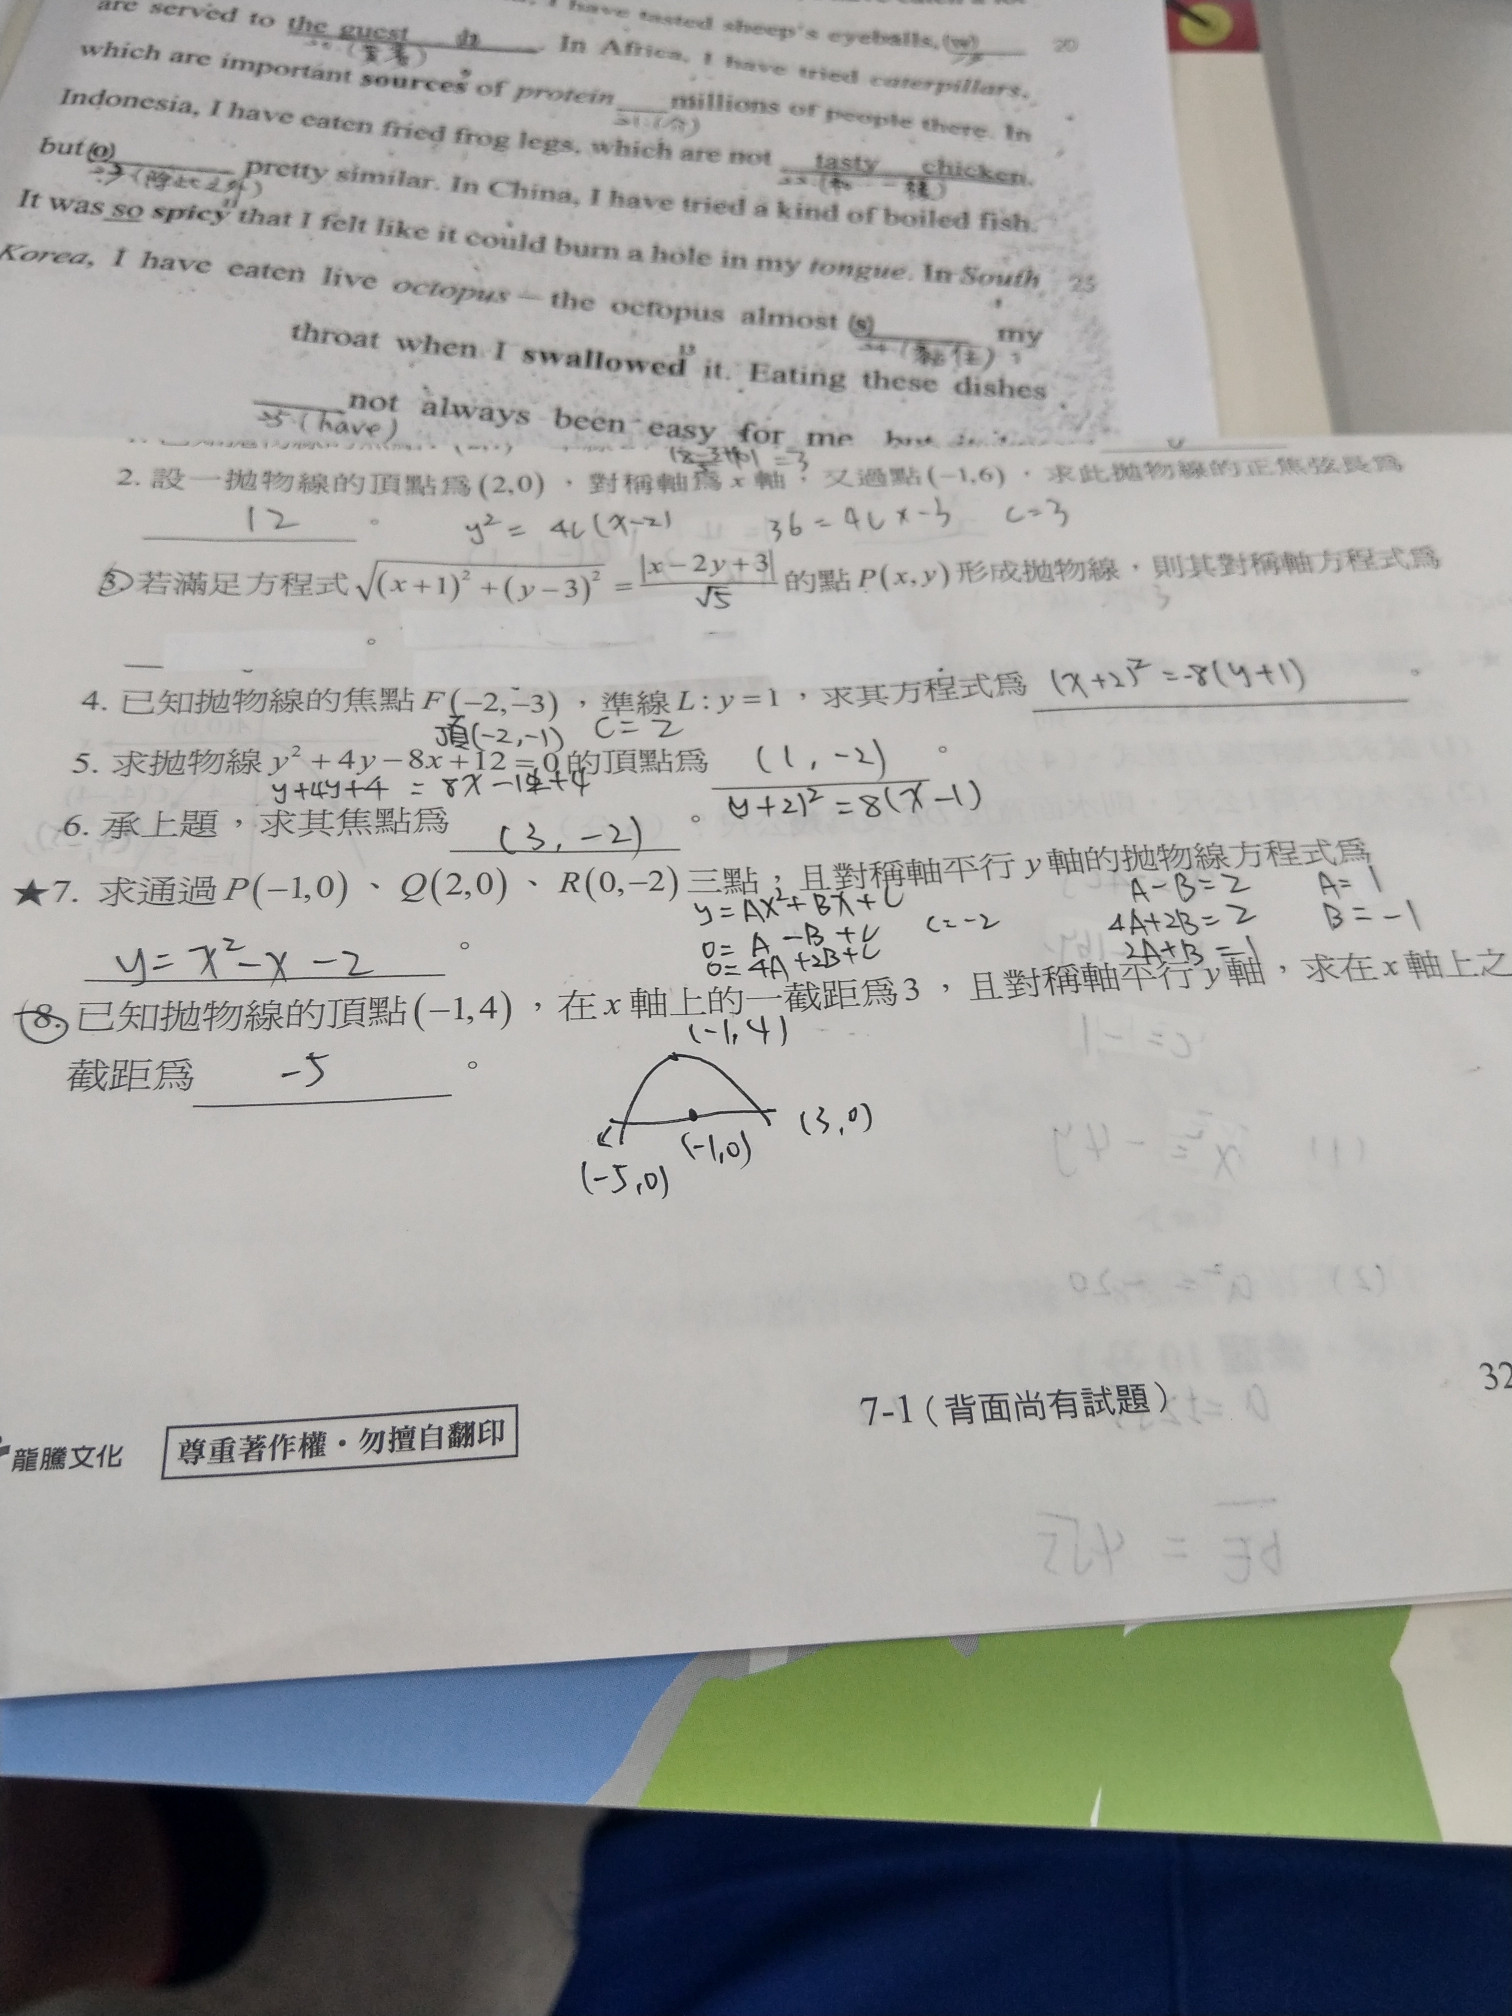 I have tasted sheep's eyeballs, (w) 20
are served to the guest
In Africa, I have tried caterpillars,
which are important sources of protein ___ millions of people there. In
Indonesia, I have eaten fried frog legs, which are not tasty chicken,
but (o) pretty similar. In China, I have tried a kind of boiled fish.
It was so spicy that I felt like it could burn a hole in my tongue. In South 25
Korea, I have eaten live octopus — the octopus almost (s) my
(黏住)
throat when I swallowed it. Eating these dishes
___ not always been easy for me
(have)
2. 設一拋物線的頂點為(2,0),對稱軸為x軸,又過點(−1,6),求此拋物線的正焦弦長為
12 。 y²=4c(x-2) 36=4c×-3 c=3
3. 若滿足方程式√((x+1)²+(y−3)²) = |x−2y+3|/√5 的點P(x,y)形成拋物線,則其對稱軸方程式為
。
4. 已知拋物線的焦點F(−2,−3),準線L:y=1,求其方程式為 (x+2)²=-8(y+1) 。
頂(-2,-1) c=2
5. 求拋物線y²+4y−8x+12=0的頂點為 (1,-2) 。
y+4y+4 = 8x-12+4 y+2)²=8(x-1)
6. 承上題,求其焦點為 (3,-2) 。
★7. 求通過P(−1,0)、Q(2,0)、R(0,−2)三點,且對稱軸平行y軸的拋物線方程式為
y=Ax²+Bx+c A-B=2 A=1
0=A-B+c c=-2 4A+2B=2 B=-1
0=4A+2B+c 2A+B=1
y=x²-x-2 。
8. 已知拋物線的頂點(−1,4),在x軸上的一截距為3,且對稱軸平行y軸,求在x軸上之
截距為 -5 。
(-1,4)
(3,0)
(-1,0)
(-5,0)
7-1(背面尚有試題)
32
龍騰文化 尊重著作權・勿擅自翻印